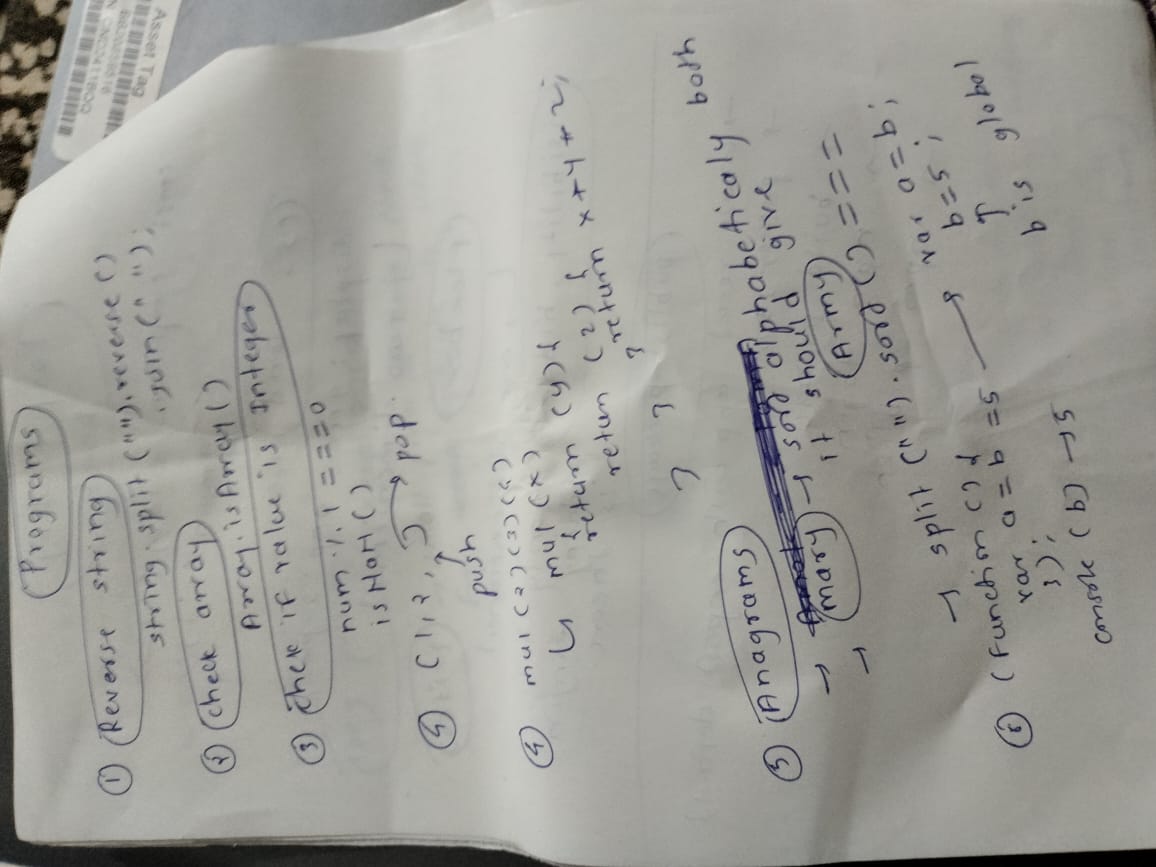 Programs
① Reverse string
string.split("").reverse()
.join("");
② check array
Array.isArray()
③ check if value is Integer
num % 1 === 0
④ (1, 2,
pop.
push
④ mul(2)(3)(4)
mul(x)
{ return (y) {
return (z) {
return x + y + z;
}
}
}
⑤ Anagrams
→ sort alphabeticaly both
→ mary → it should give
Army
→ split("").sort() ===
⑥ (Function() {
var a = b = 5 → var a = b;
b = 5;
});
b is global
console(b) → 5
Asset Tag